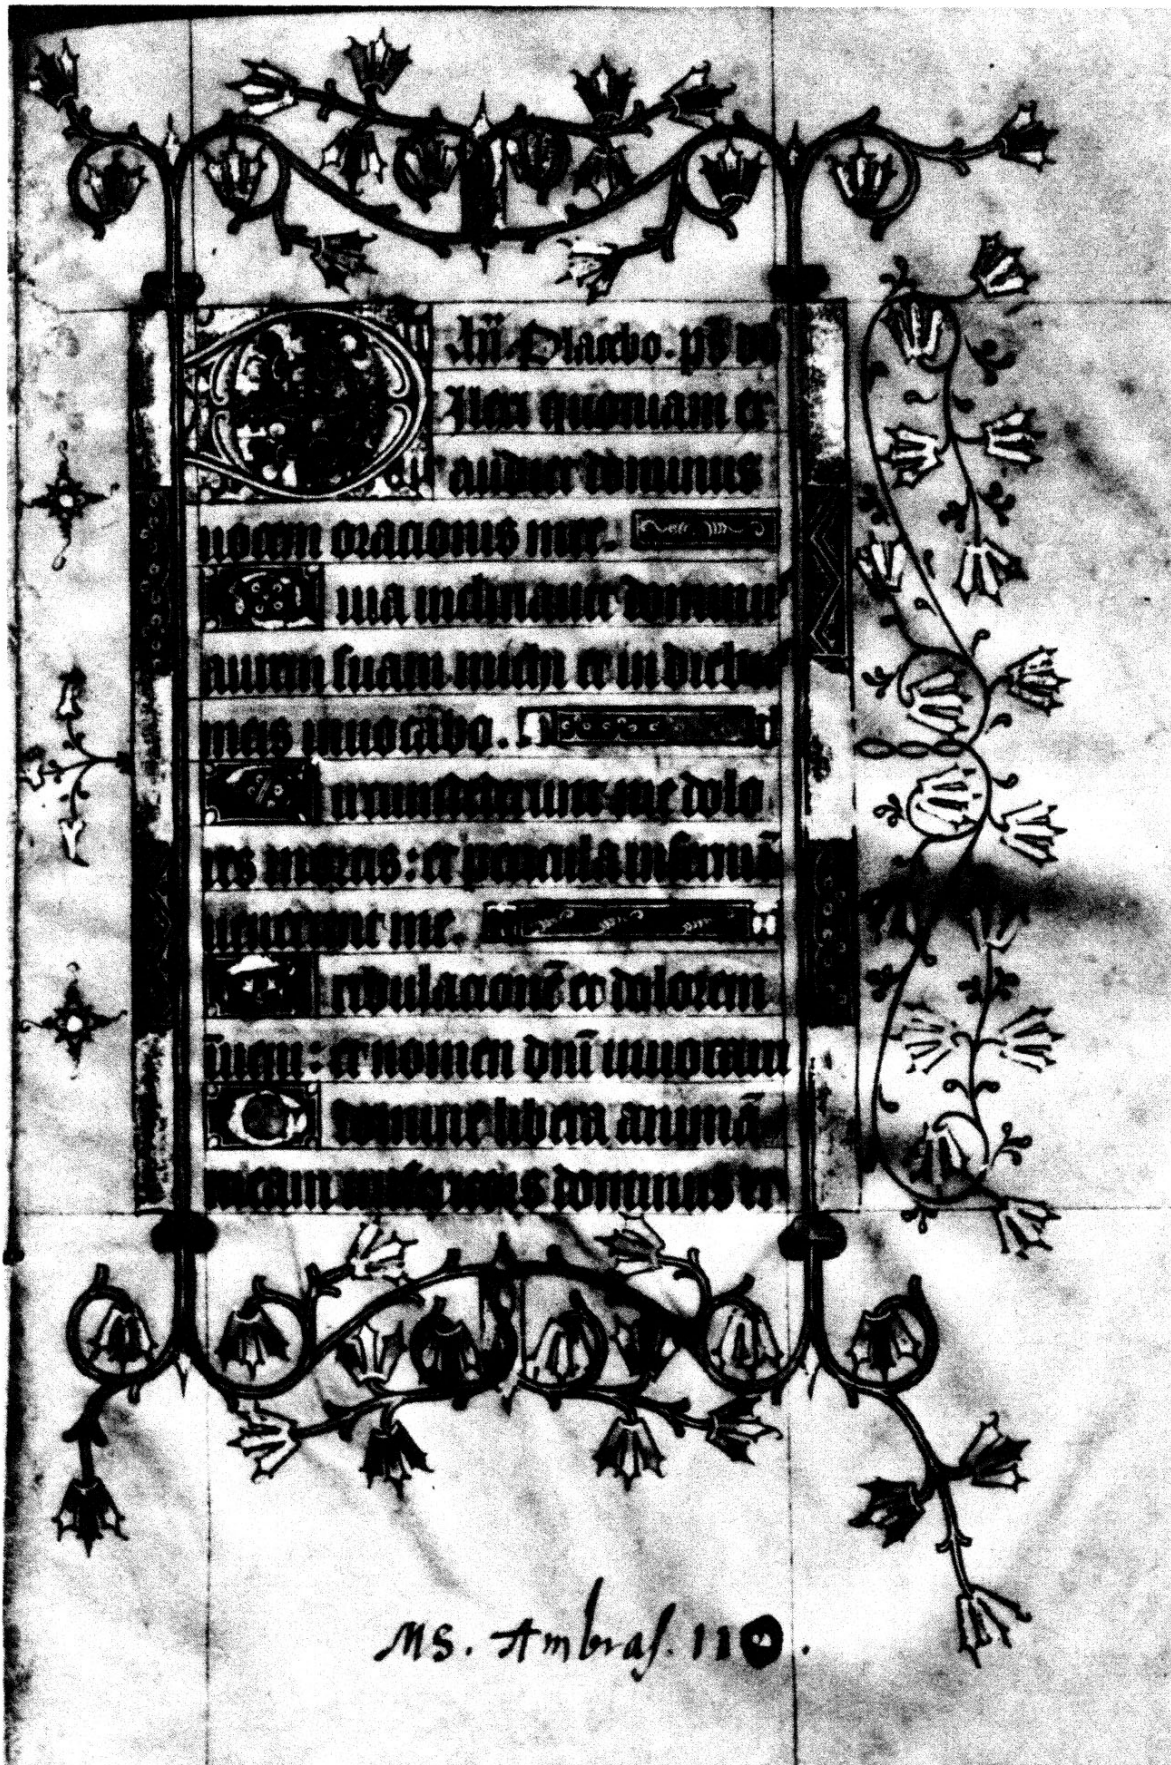 An̄. Placebo. ps̄ dd
Ilexi quoniam ex
audiuet dominus
uocem orationis mee.
Quia inclinauit dominus
aurem suam michi et in diebus
meis inuocabo.
Circumdederunt me dolo
res mortis: et pericula inferni in
uenerunt me.
Tribulationē et dolorem
īueni: et nomen dn̄i inuocaui
O domine libera animā
meam misericors dominus et
MS. Ambras. 110.